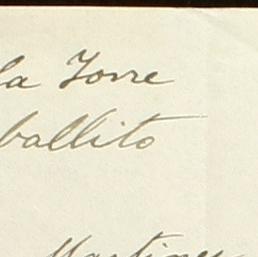 la Torre
ballito
Martinez